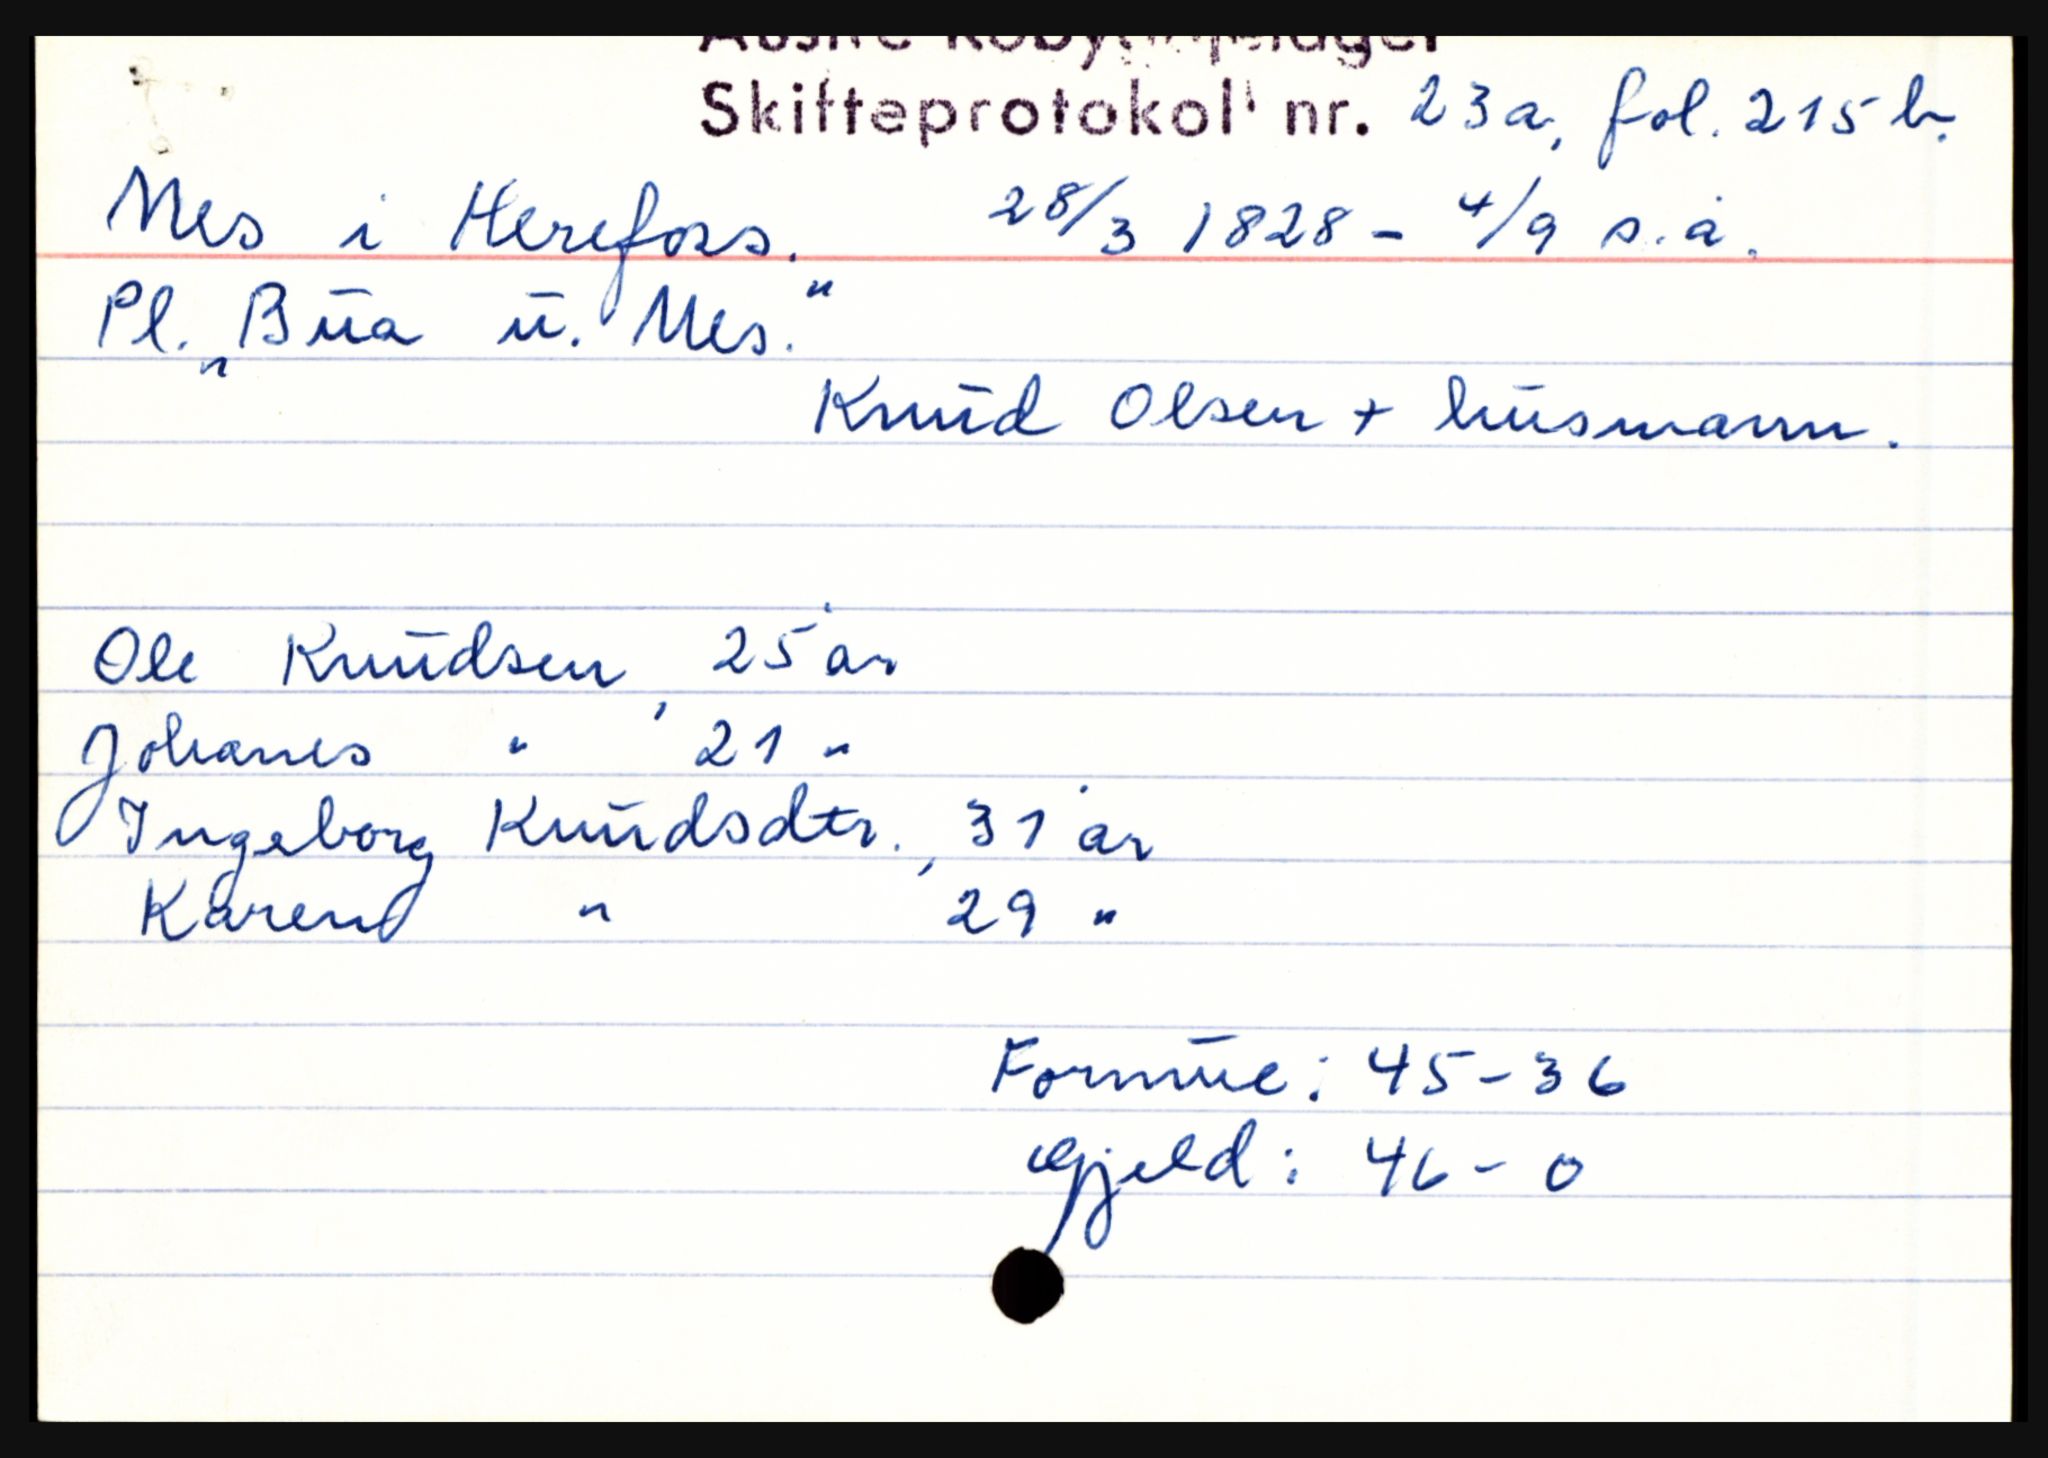 Skifteprotokoll nr. 23a, fol. 215 b.
Nes i Herefoss. 28/3 1828 - 4/9 s.å.
Pl. „Bua u. Nes."
Knud Olsen + husmann.
Ole Knudsen, 25 år
Johanes " , 21 "
Ingeborg Knudsdtr., 31 år
Karen " 29 "
Formue: 45-36
Gjeld: 46-0